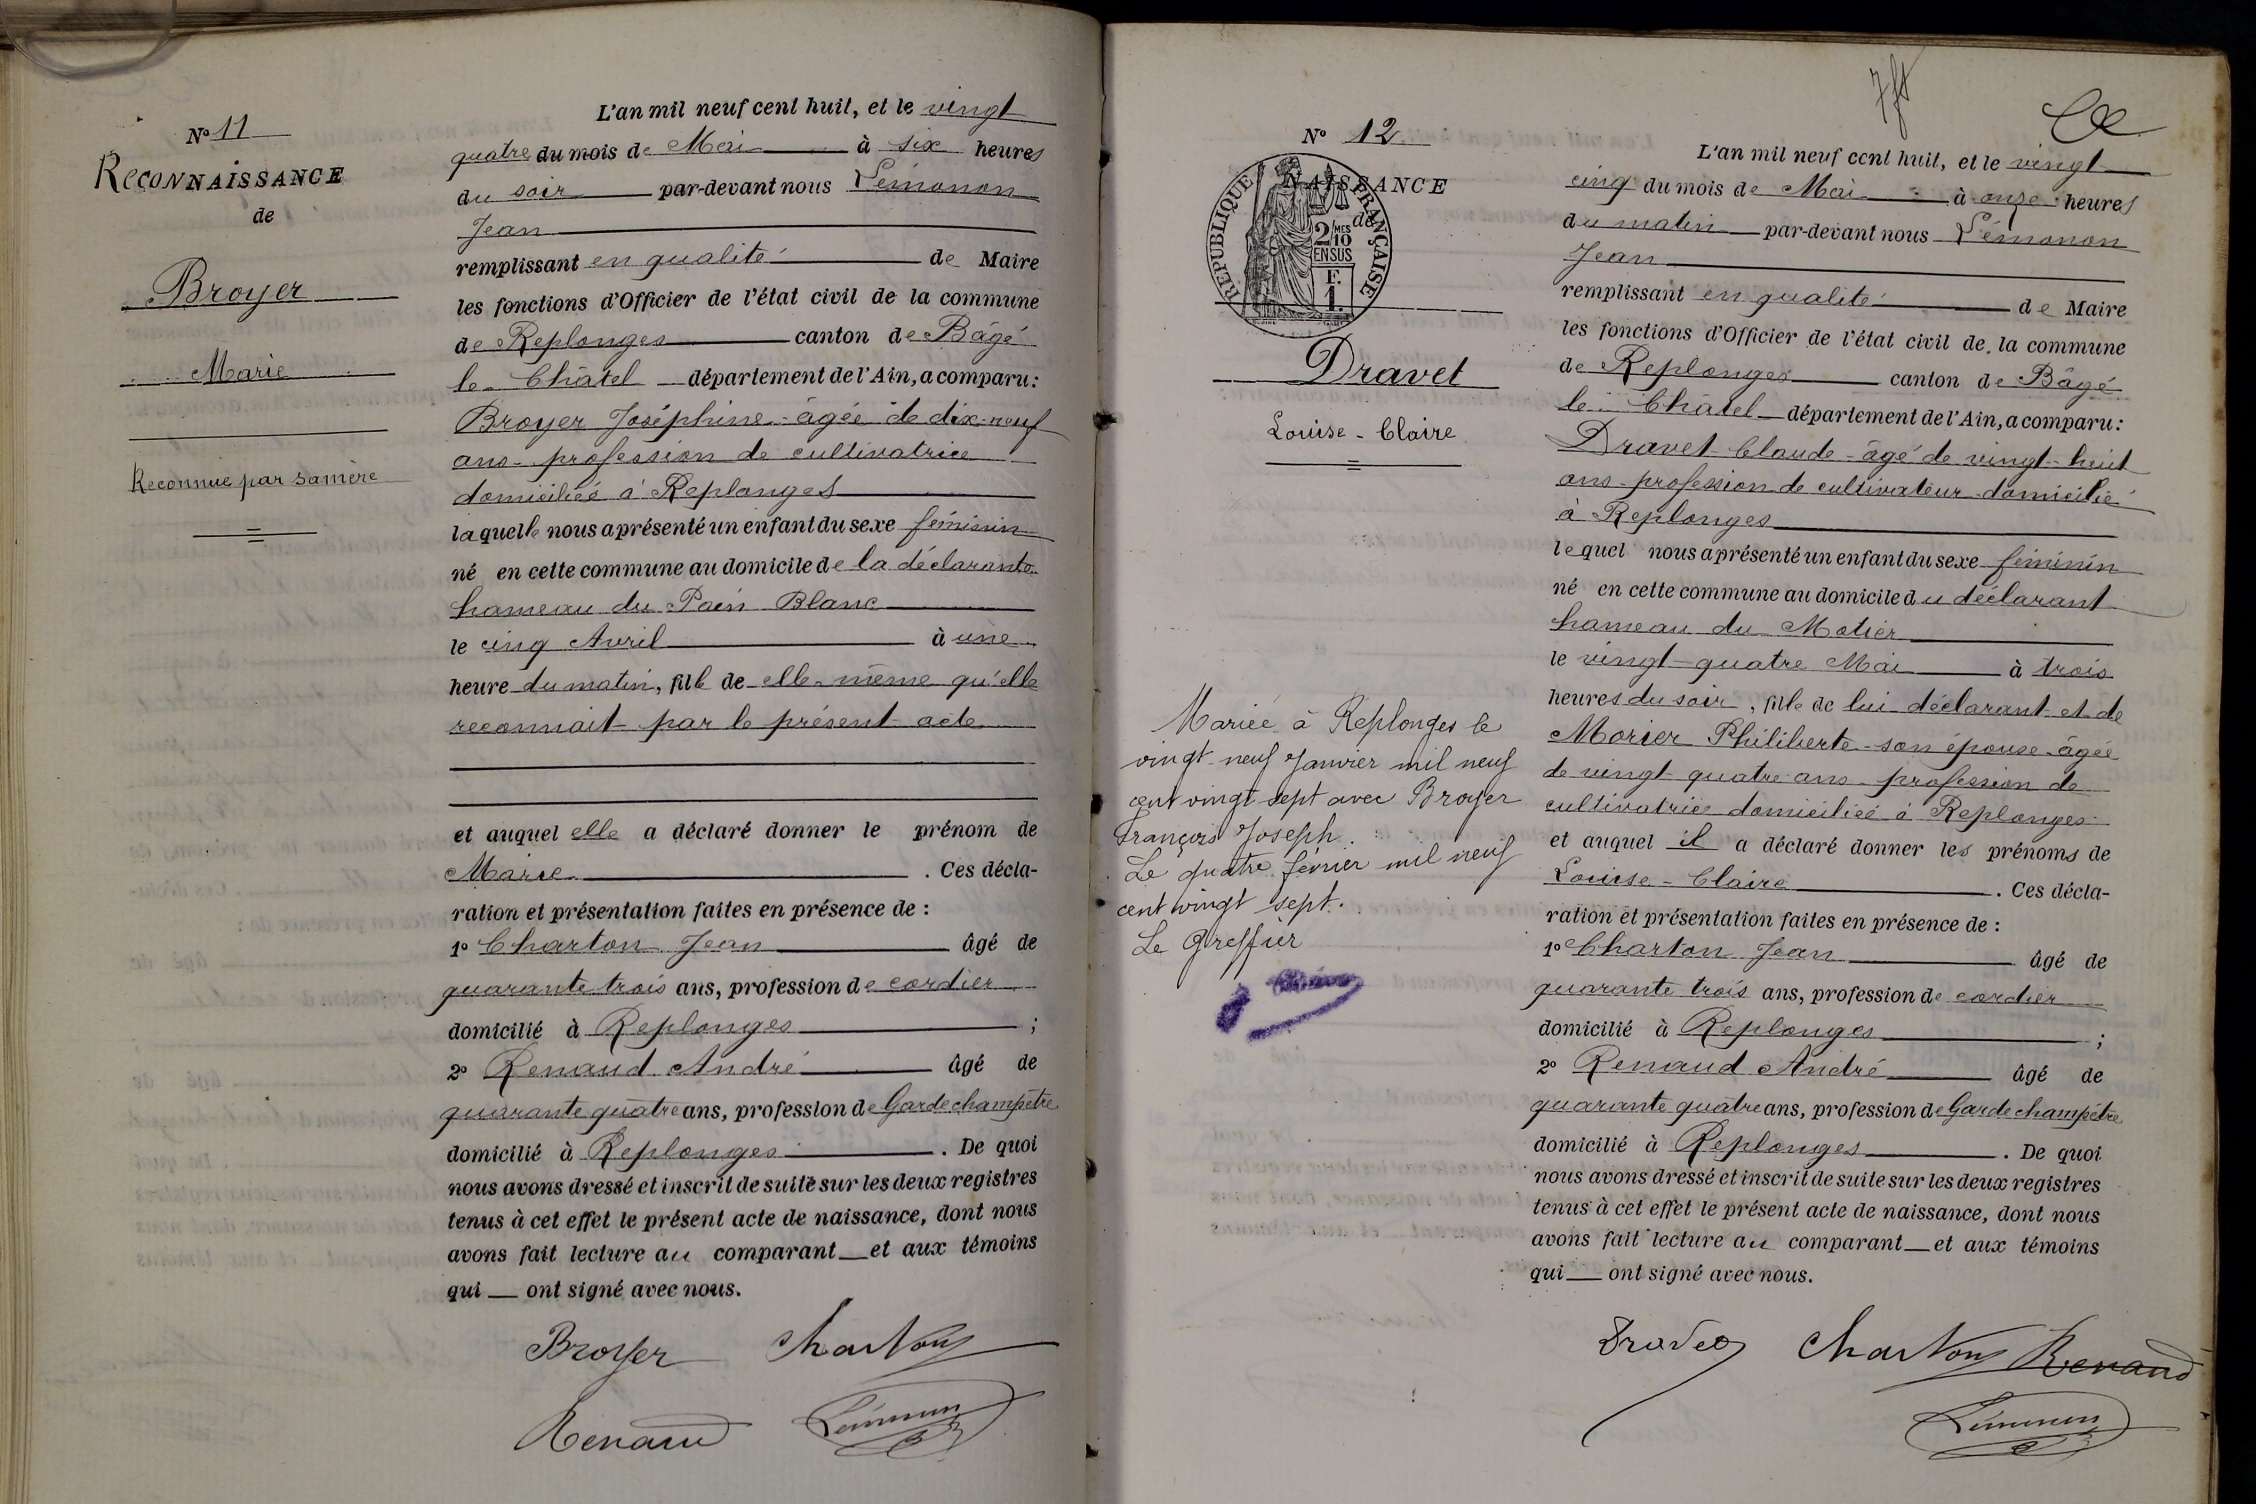 N° 11
RECONNAISSANCE
de
Broyer
Marie
Reconnue par sa mère
L'an mil neuf cent huit, et le vingt
quatre du mois de Mai à six heures
du soir par-devant nous Lémonon
Jean
remplissant en qualité de Maire
les fonctions d'Officier de l'état civil de la commune
de Replonges canton de Bâgé
le Châtel département de l'Ain, a comparu :
Broyer Joséphine âgée de dix-neuf
ans profession de cultivatrice
domiciliée à Replonges
laquelle nous a présenté un enfant du sexe féminin
né en cette commune au domicile de la déclarante
hameau du Pain Blanc
le cinq Avril à une
heure du matin, fille de elle-même qu'elle
reconnait par le présent acte
et auquel elle a déclaré donner le prénom de
Marie . Ces décla-
ration et présentation faites en présence de :
1° Charton Jean âgé de
quarante trois ans, profession de cordier
domicilié à Replonges ;
2° Renaud André âgé de
quarante quatre ans, profession de Garde champêtre
domicilié à Replonges . De quoi
nous avons dressé et inscrit de suite sur les deux registres
tenus à cet effet le présent acte de naissance, dont nous
avons fait lecture au comparant et aux témoins
qui ont signé avec nous.
Broyer Charton
Renaud Lémonon
N° 12
NAISSANCE
de
RÉPUBLIQUE FRANÇAISE
2/10 MES
EN SUS
F.
1.
Dravet
Louise - Claire
Mariée à Replonges le
vingt neuf Janvier mil neuf
cent vingt sept avec Broyer
François Joseph.
Le quatre février mil neuf
cent vingt sept.
Le Greffier
L'an mil neuf cent huit, et le vingt
cinq du mois de Mai à onze heures
du matin par-devant nous Lémonon
Jean
remplissant en qualité de Maire
les fonctions d'Officier de l'état civil de la commune
de Replonges canton de Bâgé
le Châtel département de l'Ain, a comparu :
Dravet Claude âgé de vingt-huit
ans profession de cultivateur domicilié
à Replonges
lequel nous a présenté un enfant du sexe féminin
né en cette commune au domicile du déclarant
hameau du Motier
le vingt-quatre Mai à trois
heures du soir, fille de lui déclarant et de
Morier Philiberte son épouse âgée
de vingt quatre ans profession de
cultivatrice domiciliée à Replonges
et auquel il a déclaré donner les prénoms de
Louise - Claire . Ces décla-
ration et présentation faites en présence de :
1° Charton Jean âgé de
quarante trois ans, profession de cordier
domicilié à Replonges ;
2° Renaud André âgé de
quarante quatre ans, profession de Garde champêtre
domicilié à Replonges . De quoi
nous avons dressé et inscrit de suite sur les deux registres
tenus à cet effet le présent acte de naissance, dont nous
avons fait lecture au comparant et aux témoins
qui ont signé avec nous.
Dravet Charton Renaud
Lémonon